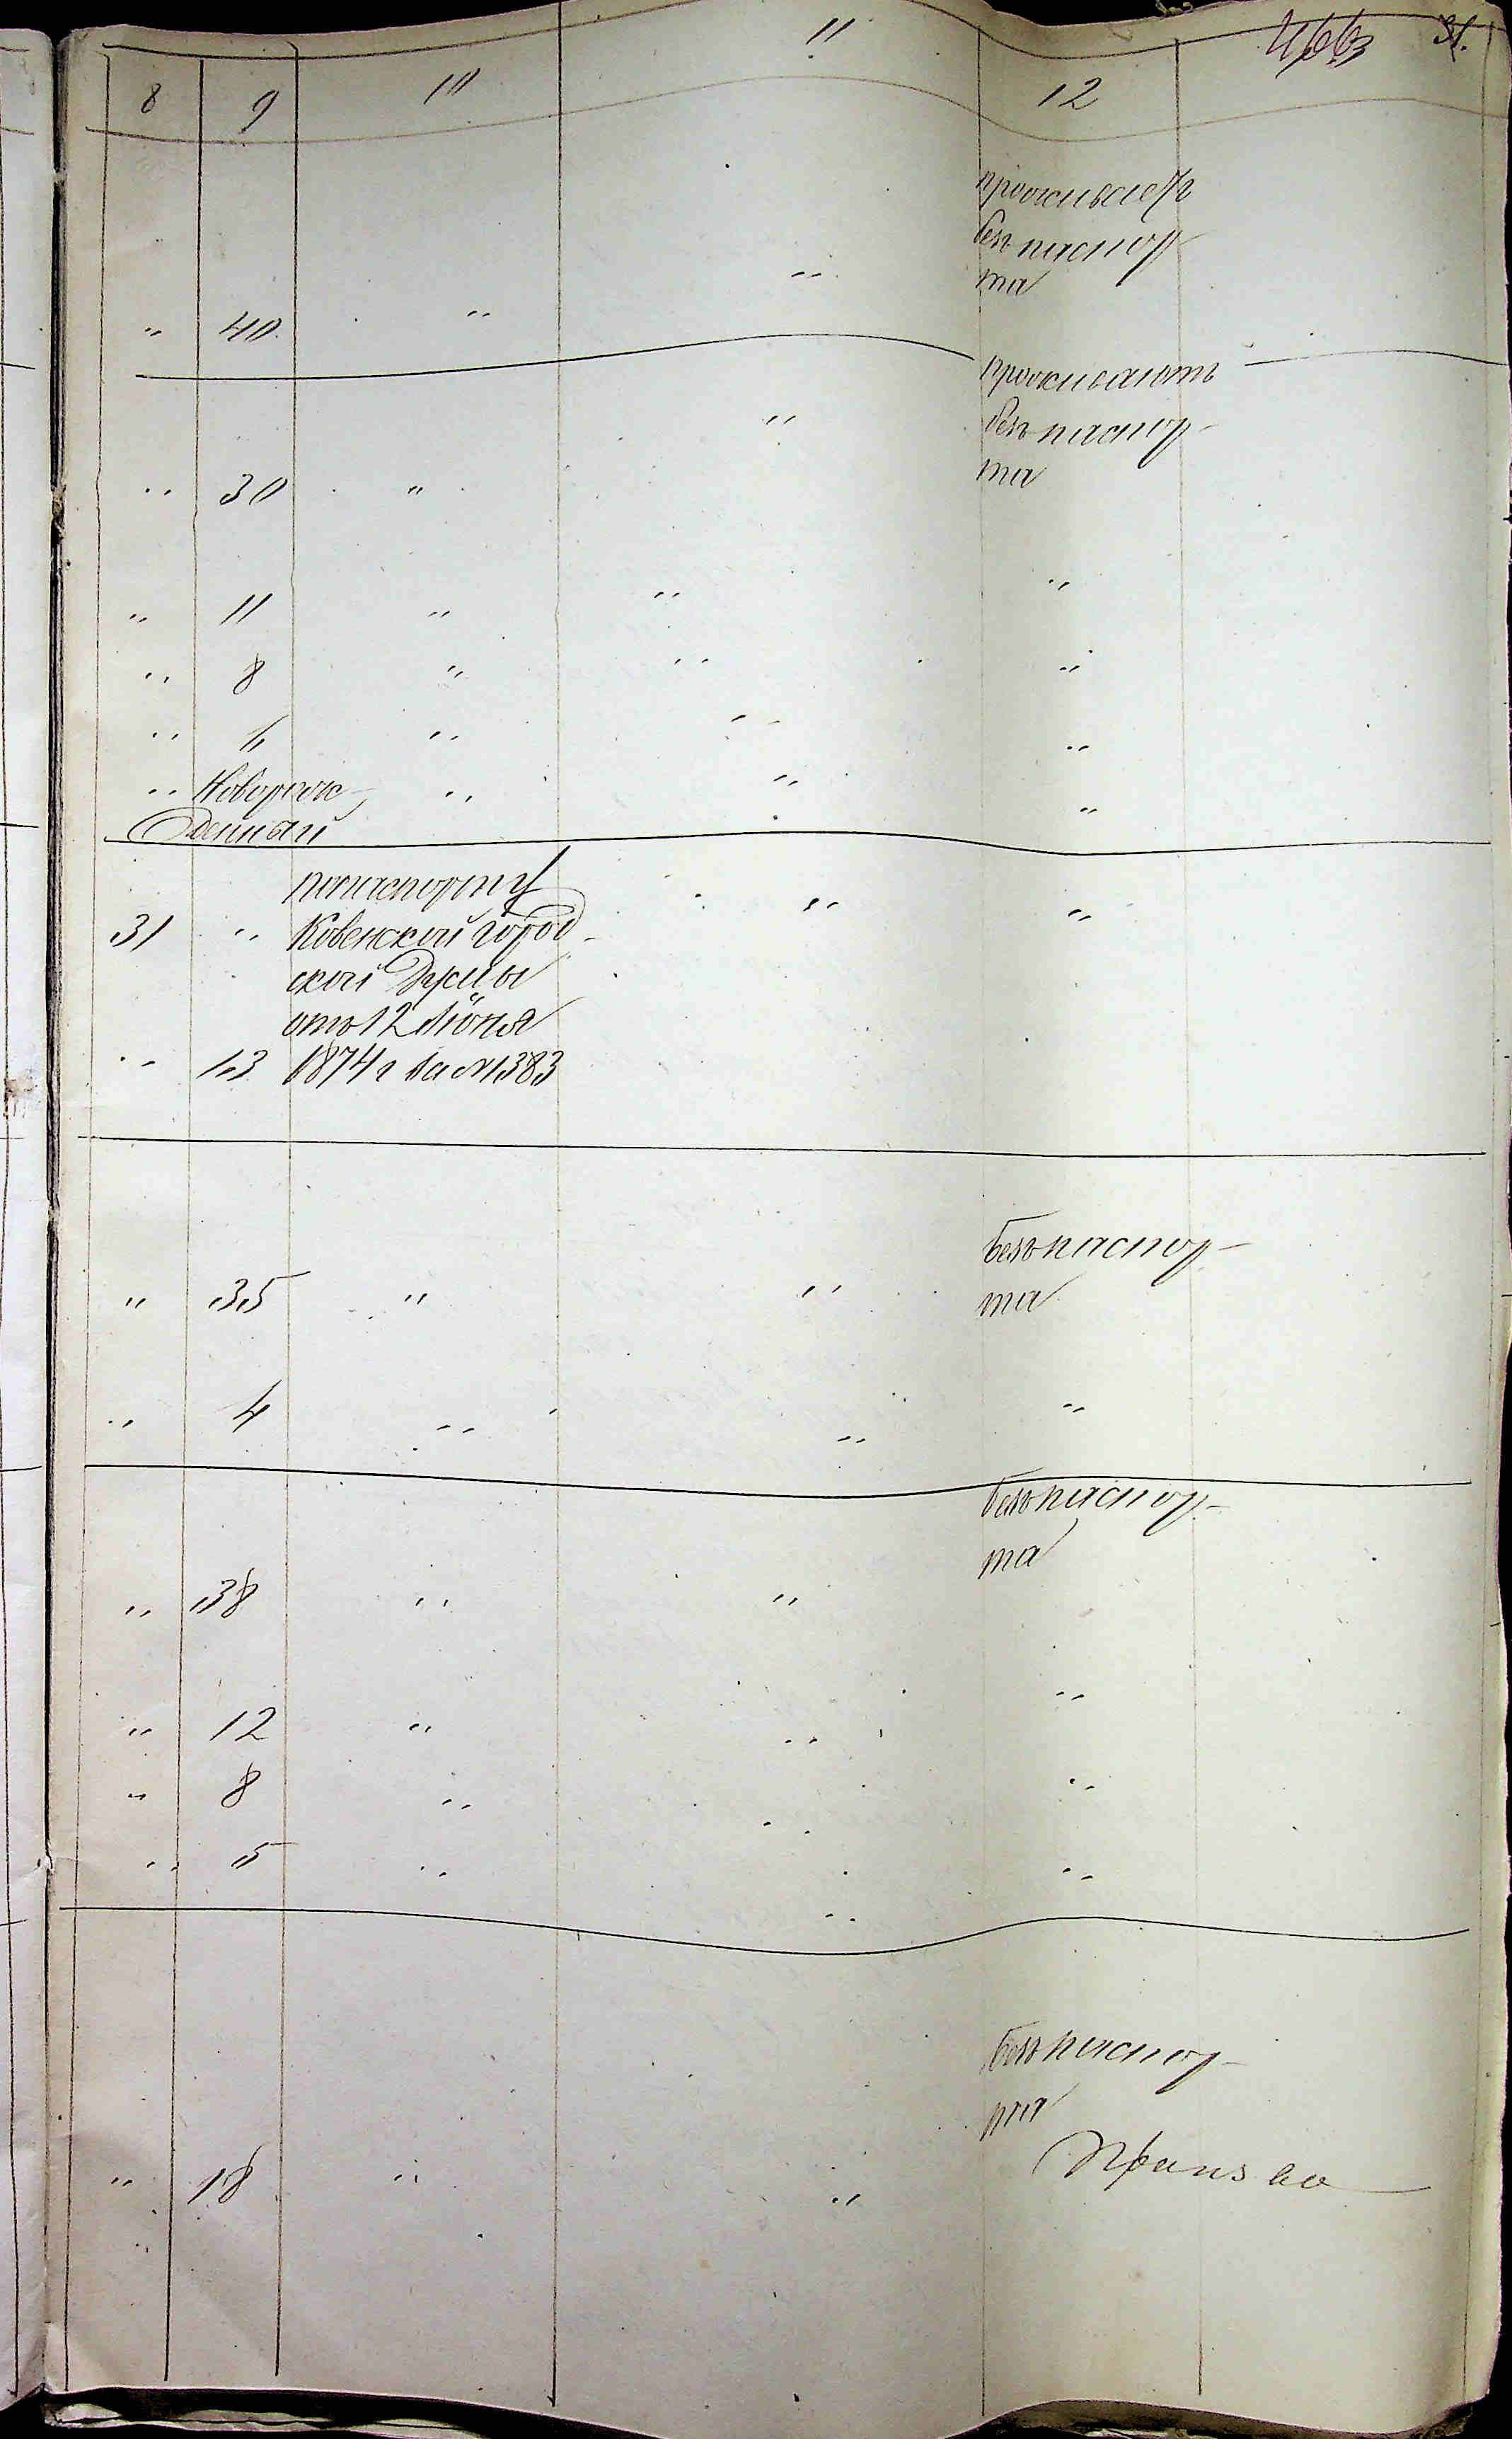 466 31.
8 9 10 11 12
проживаетъ
безъ паспор-
та
" 40. " "
проживаютъ
безъ паспор-
та
" 30 " "
" 11 " " "
" 8 " " "
" 6 " " "
" Новорож- " " "
денный
по паспорту
31 " Ковенской город- " "
ской Думы
отъ 12 Июня
" 13 1874 г за №1383
безъ паспор-
та
" 35 " "
" 4 " " "
безъ паспор-
та
" 38 " "
" 12 " " "
" 8 " " "
" 5 " " "
безъ паспор-
та
" 18 " "